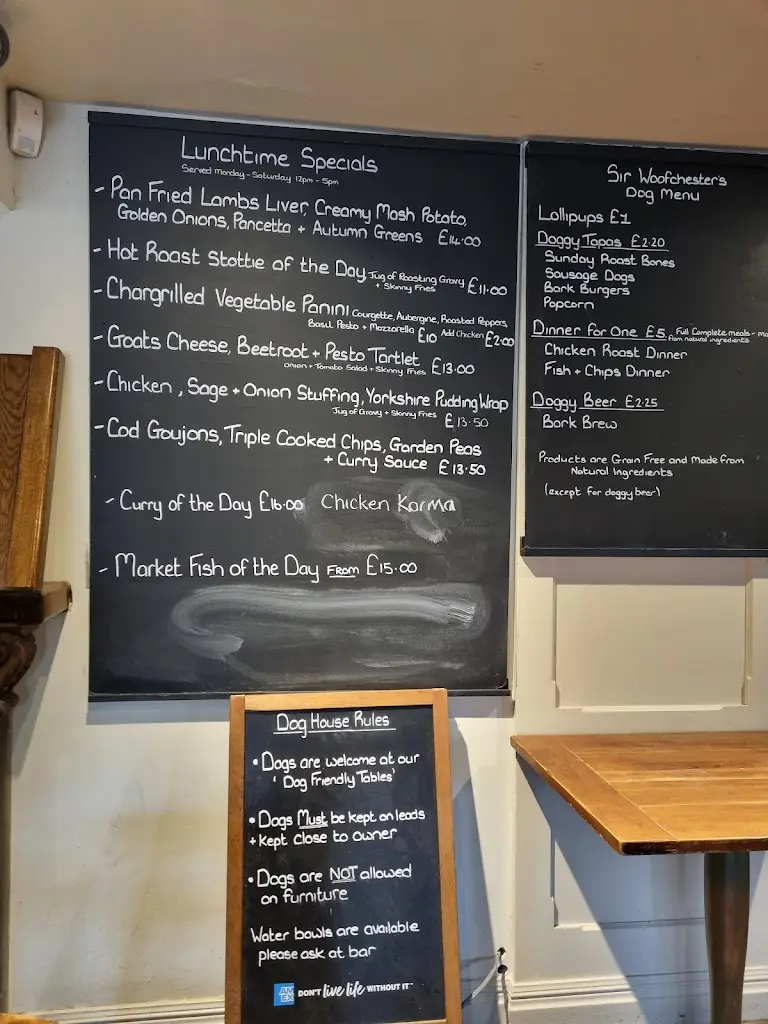 Lunchtime Specials
Served Monday - Saturday 12pm - 5pm
- Pan Fried Lambs Liver, Creamy Mash Potato,
Golden Onions, Pancetta + Autumn Greens £14.00
- Hot Roast Stottie of the Day, Jug of Roasting Gravy
+ Skinny Fries £11.00
- Chargrilled Vegetable Panini Courgette, Aubergine, Roasted Peppers,
Basil Pesto + Mozzarella £10 Add Chicken £2.00
- Goats Cheese, Beetroot + Pesto Tartlet
Onion + Tomato Salad + Skinny Fries £13.00
- Chicken, Sage + Onion Stuffing, Yorkshire Pudding Wrap
Jug of Gravy + Skinny Fries £13.50
- Cod Goujons, Triple Cooked Chips, Garden Peas
+ Curry Sauce £13.50
- Curry of the Day £16.00 Chicken Karma
- Market Fish of the Day From £15.00
Sir Woofchester's
Dog Menu
Lollipups £1
Doggy Tapas £2.20
Sunday Roast Bones
Sausage Dogs
Bark Burgers
Popcorn
Dinner for One £5. Full Complete meals -
from natural ingredients
Chicken Roast Dinner
Fish + Chips Dinner
Doggy Beer £2.25
Bark Brew
Products are Grain Free and Made from
Natural Ingredients
(except for doggy beer)
Dog House Rules
• Dogs are welcome at our
'Dog Friendly Tables'
• Dogs Must be kept on leads
+ kept close to owner
• Dogs are NOT allowed
on furniture
Water bowls are available
please ask at bar
AM
EX DON'T live life WITHOUT IT™